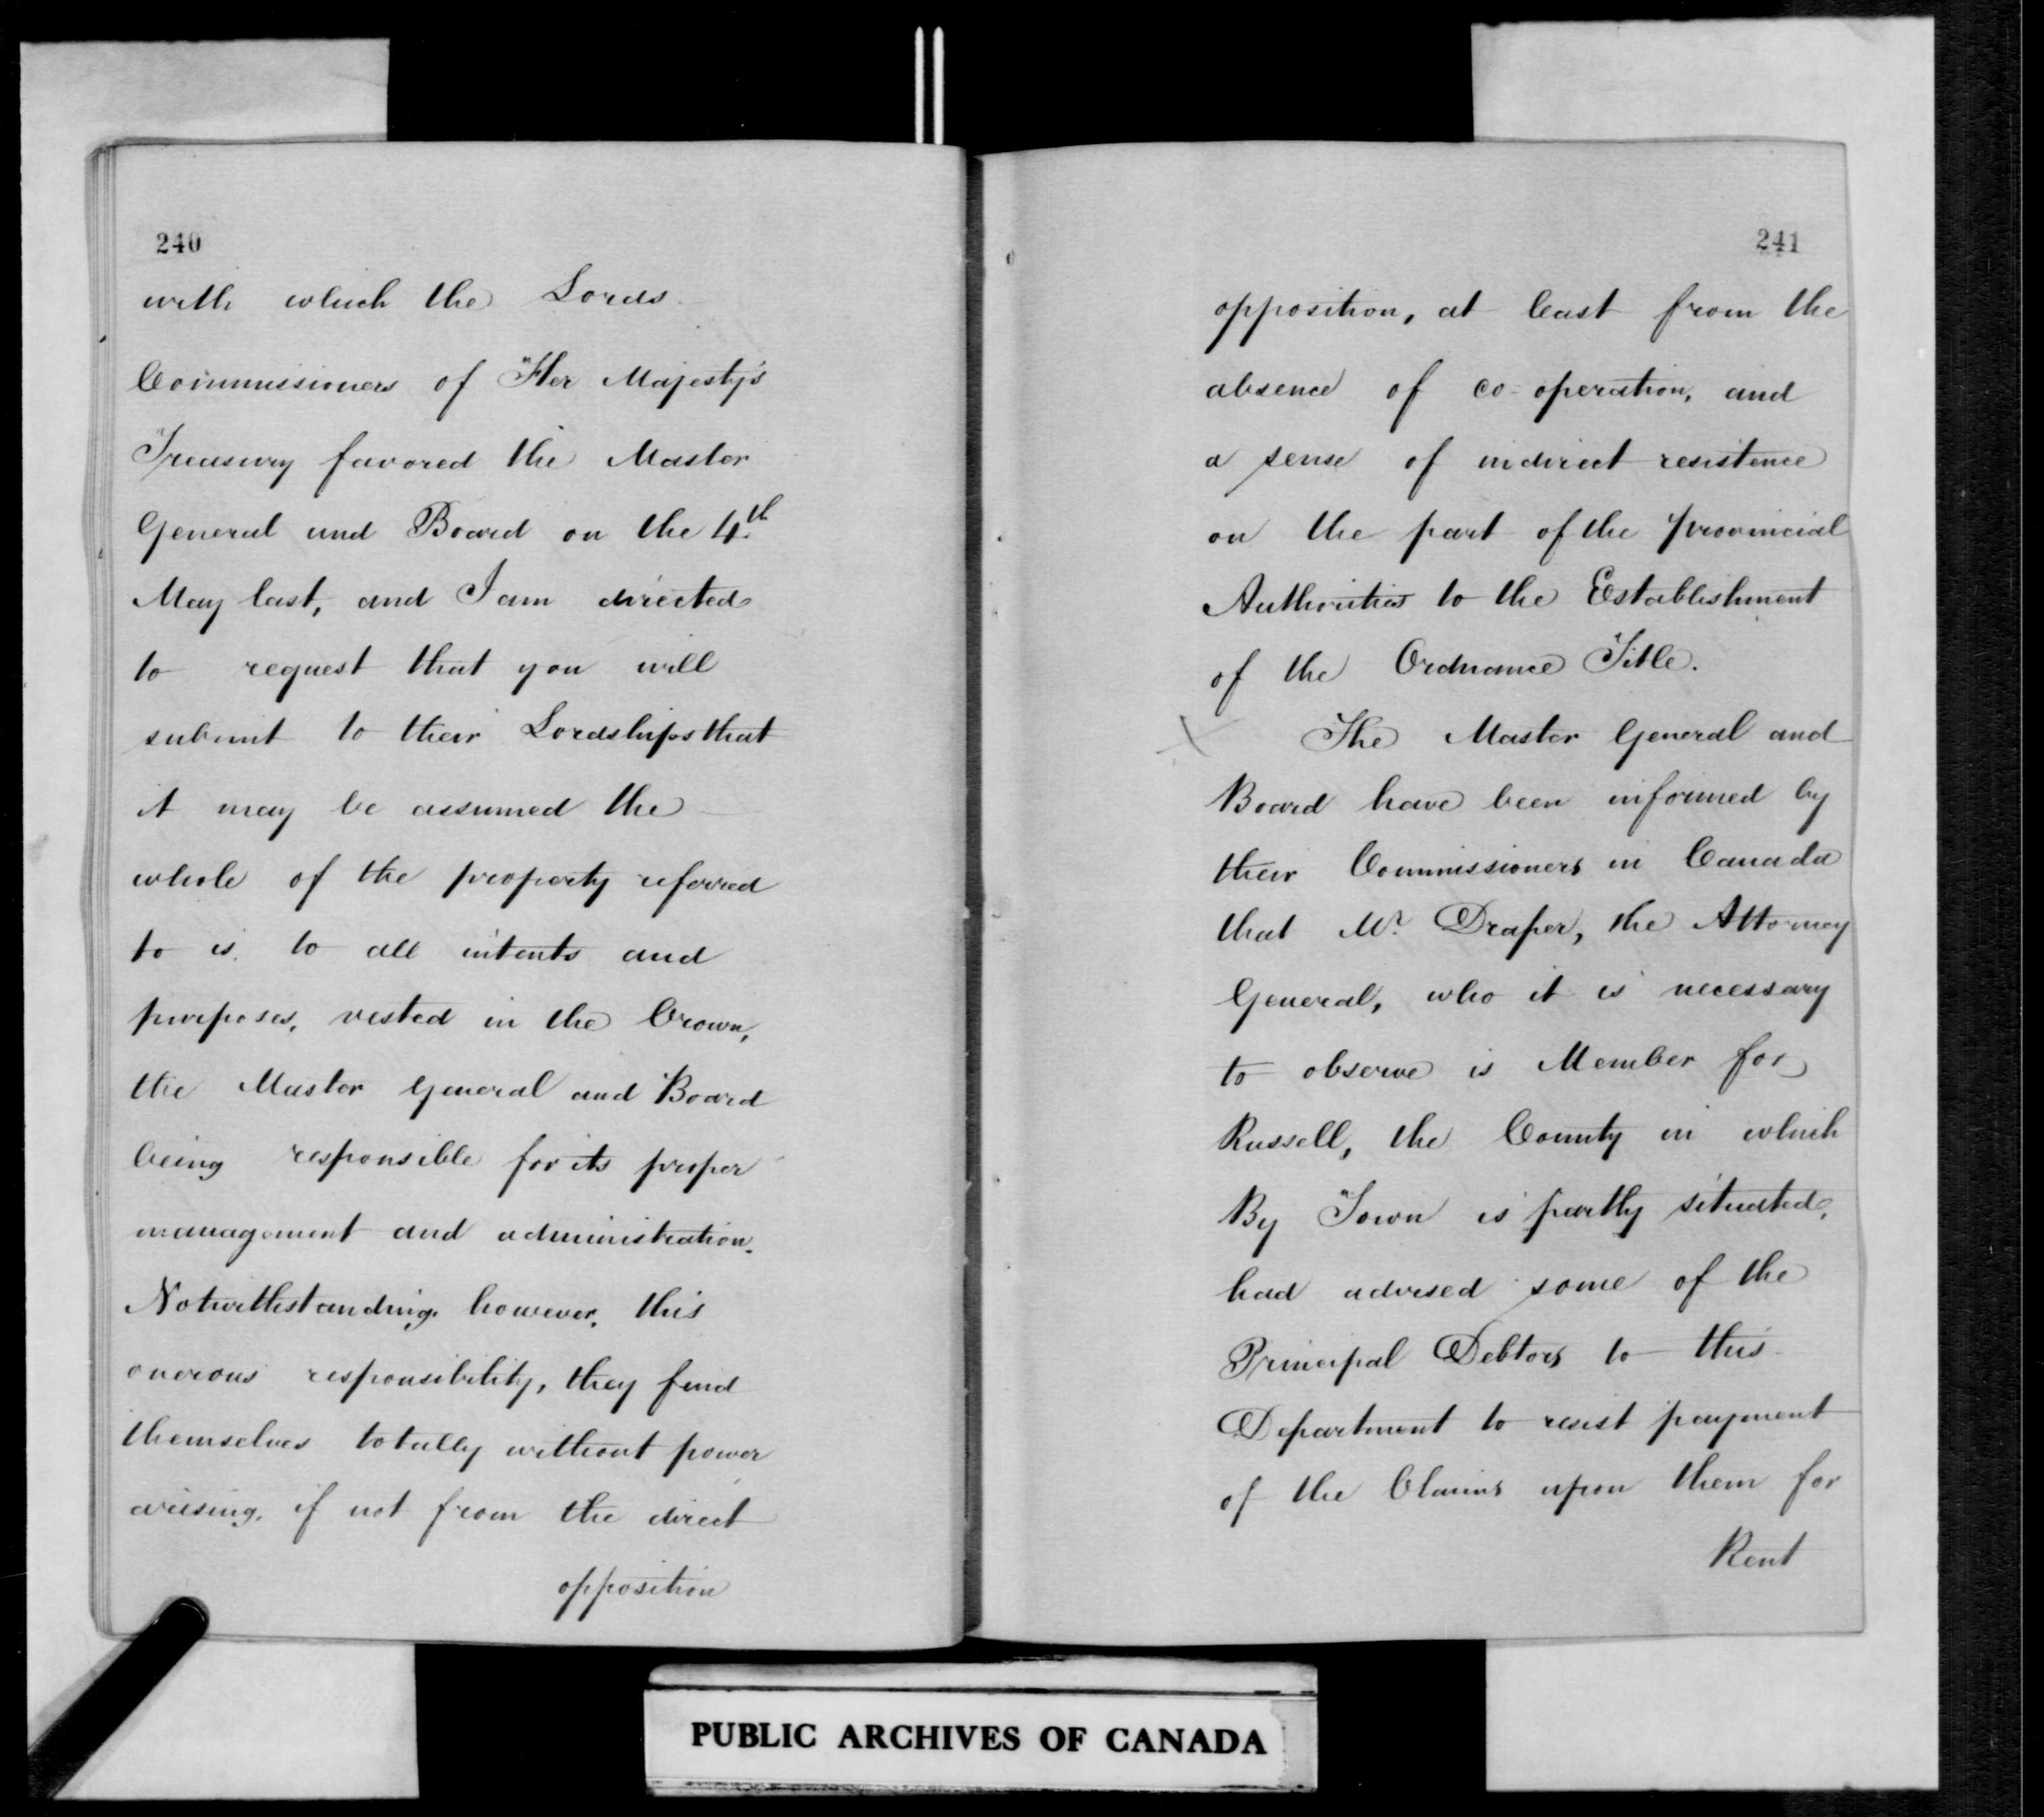 240
with which the Lords
Commissioners of Her Majesty's
Treasury favored the Master
General and Board on the 4th
May last, and I am directed
to request that you will
submit to their Lordships that
it may be assumed the
whole of the property referred
to is, to all intents and
purposes, vested in the Crown,
the Master General and Board
being responsible for its proper
management and administration.
Notwithstanding, however, this
onerous responsibility, they find
themselves totally without power
arising, if not from the direct
opposition
241
opposition, at least from the
absence of co-operation, and
a sense of indirect resistence
on the part of the provincial
Authorities to the Establishment
of the Ordnance Title.
X The Master General and
Board have been informed by
their Commissioners in Canada
that Mr. Draper, the Attorney
General, who it is necessary
to observe is Member for
Russell, the County in which
By Town is partly situated,
had advised some of the
Principal Debtors to this
Department to resist payment
of the Claims upon them for
Rent
PUBLIC ARCHIVES OF CANADA